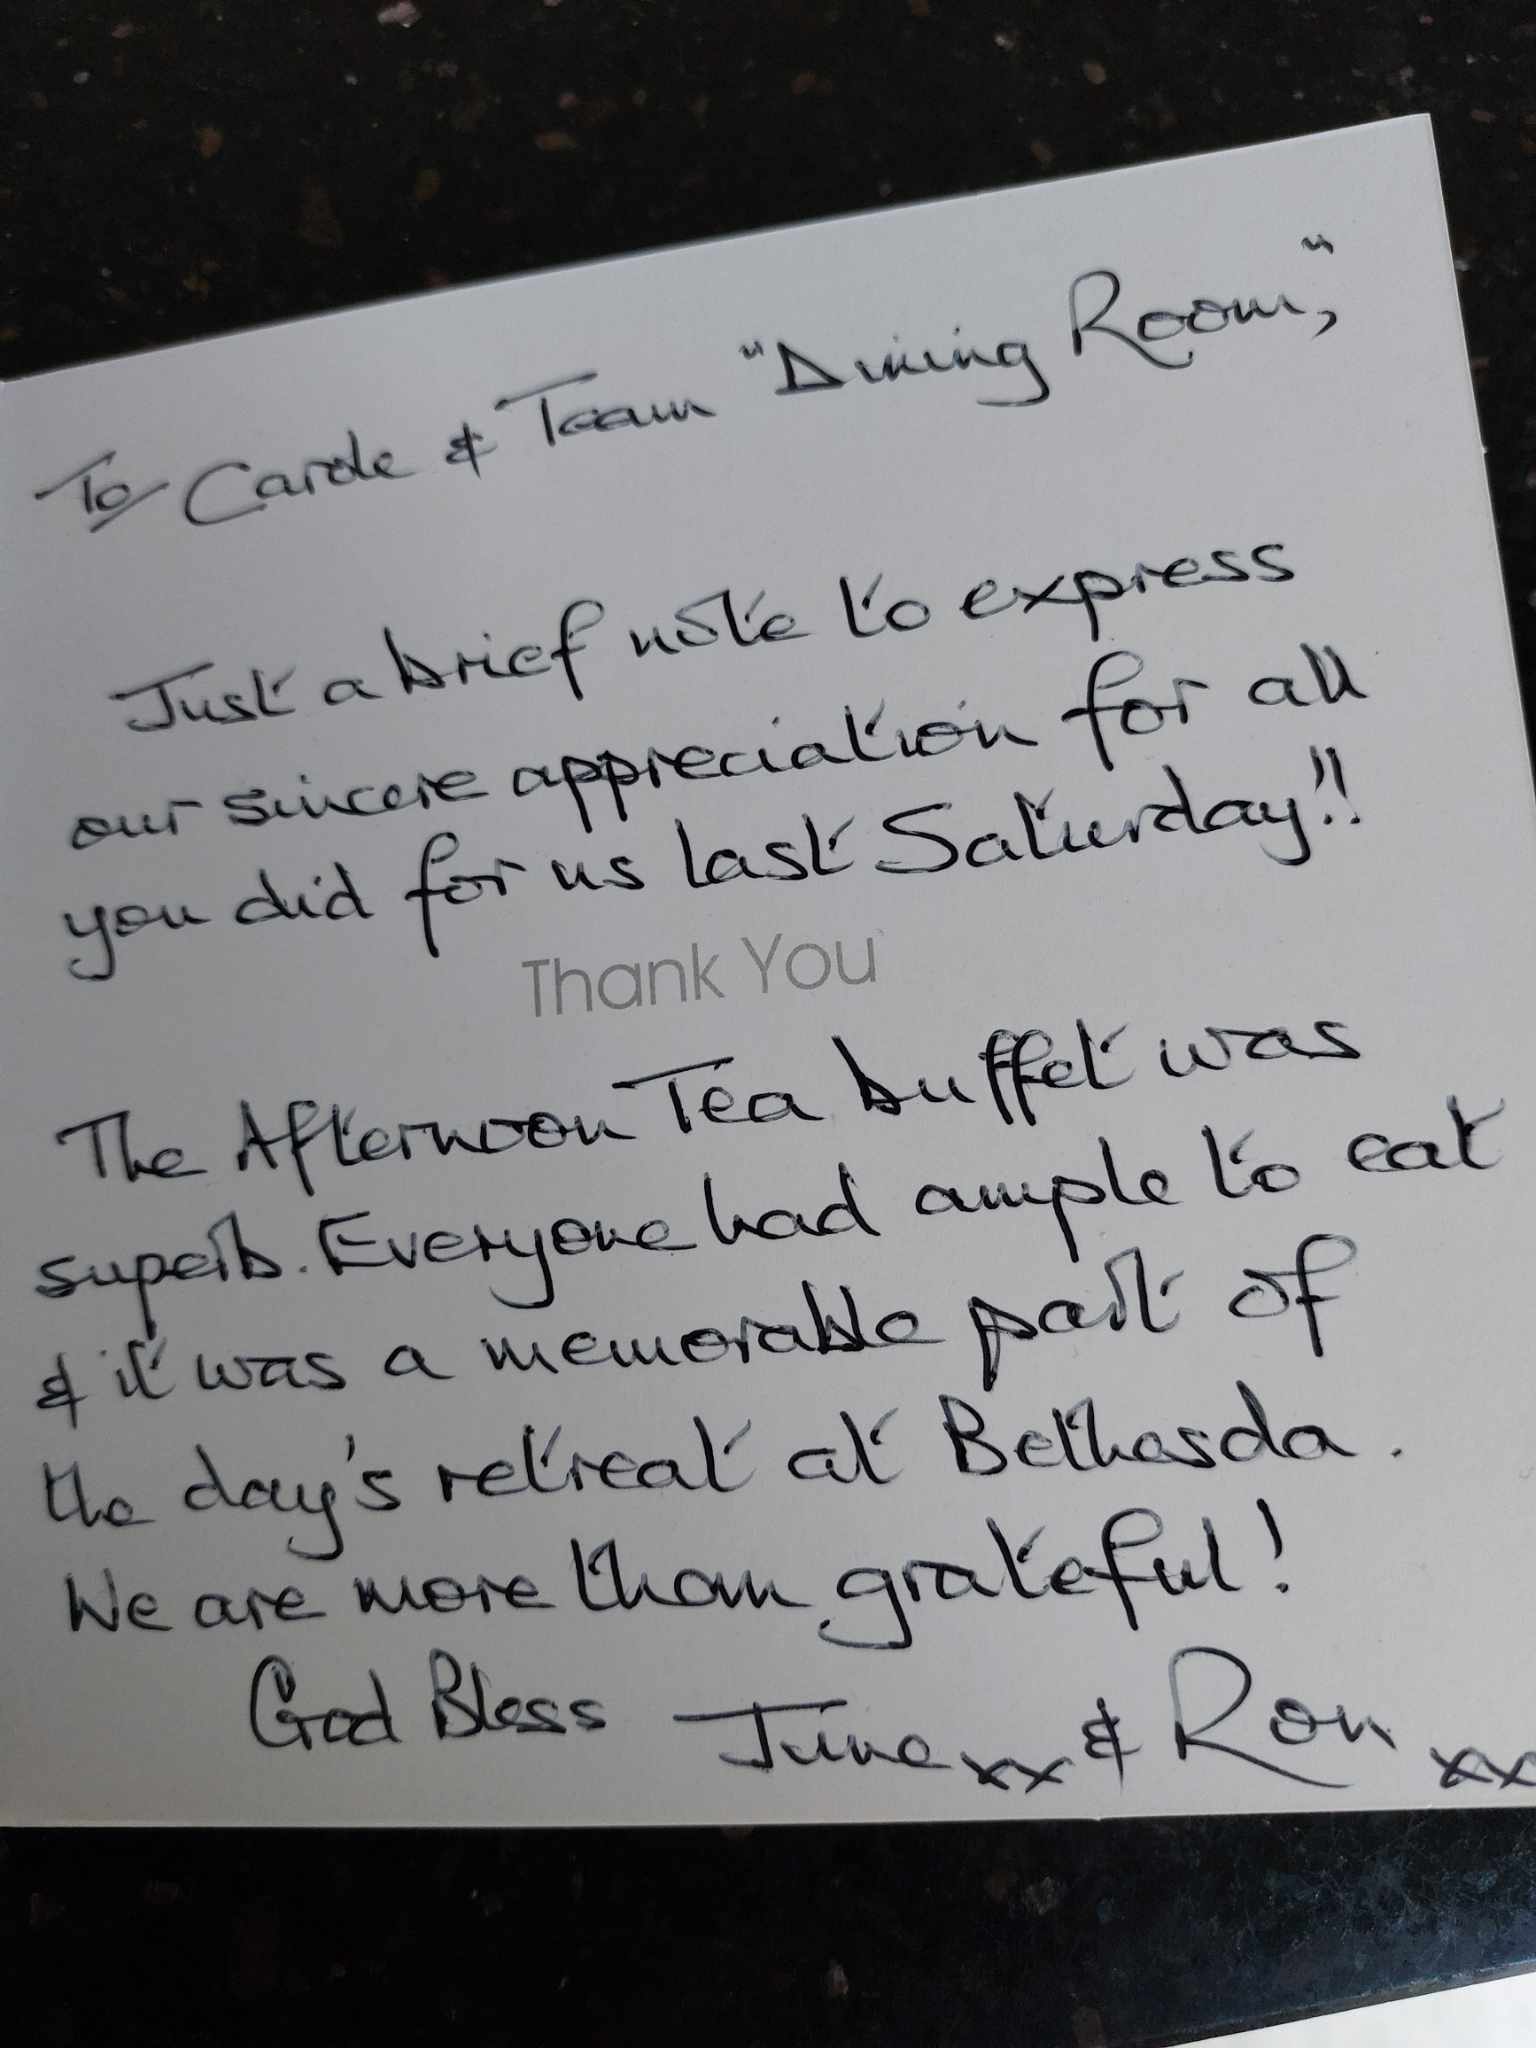 To Carole & Team "Dining Room,"
Just a brief note to express
our sincere appreciation for all
you did for us last Saturday!!
Thank You
The Afternoon Tea buffet was
superb. Everyone had ample to eat
& it was a memorable part of
the day's retreat at Bethesda.
We are more than grateful!
God Bless June xx & Ron xx